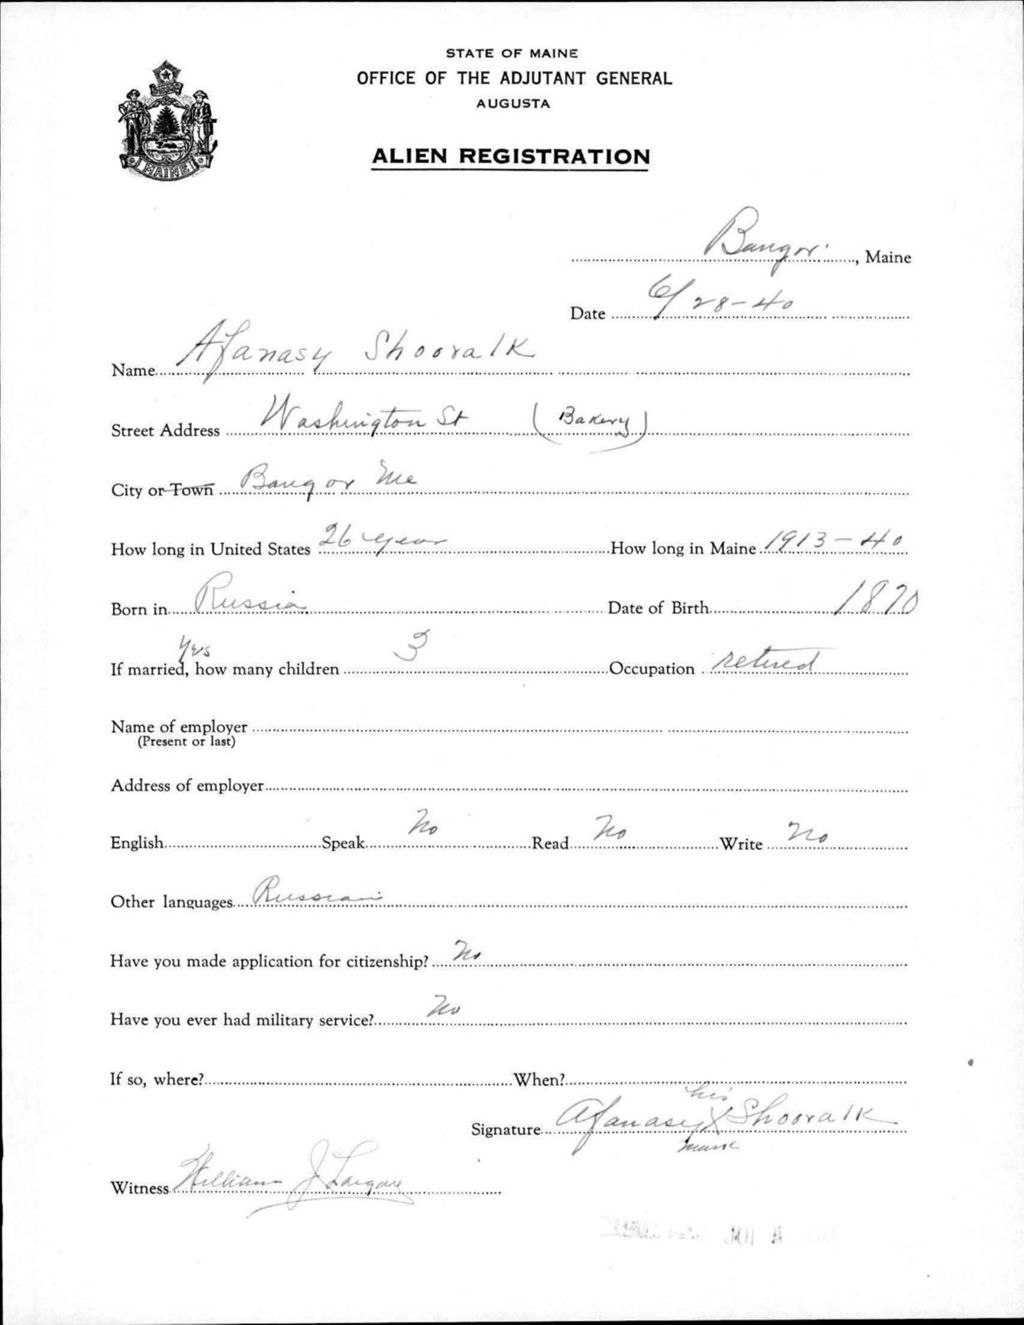 STATE OF MAINE
OFFICE OF THE ADJUTANT GENERAL
AUGUSTA
ALIEN REGISTRATION
MAINE
Bangor, Maine
Date 6/28-40
Name Afanasy Shooralk
Street Address Washington St (Bakery)
City or Town Bangor Me
How long in United States 26 year How long in Maine 1913-40
Born in Russia Date of Birth 1870
Yes
If married, how many children 3 Occupation retired
Name of employer
(Present or last)
Address of employer
English Speak No Read No Write No
Other languages Russian
Have you made application for citizenship? No
Have you ever had military service? No
If so, where? When?
his
Signature Afanasy X Shooralk
mark
Witness William J